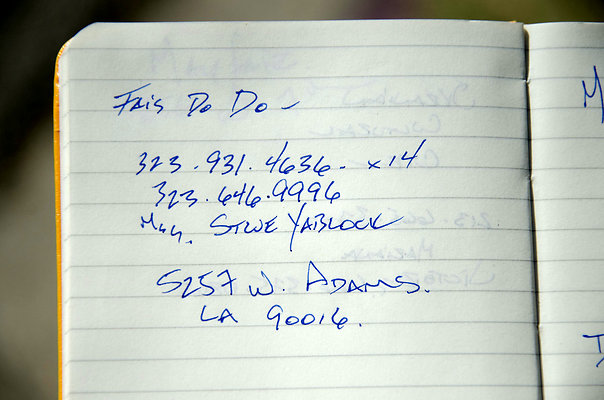 Fais Do Do
323.931.4636. x14
323.646.9996
Mgr. Steve Yablock
5257 W. Adams.
LA 90016.
M